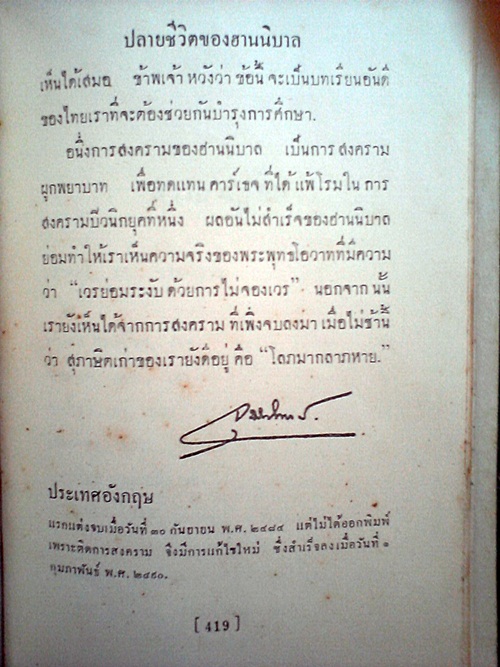 ปลายชีวิตของฮานนิบาล
เห็นได้เสมอ ข้าพเจ้า หวังว่า ข้อนี้ จะเป็นบทเรียนอันดี
ของไทยเราที่จะต้องช่วยกันบำรุงการศึกษา.
อนึ่งการสงครามของฮานนิบาล เป็นการ สงคราม
ผูกพยาบาท เพื่อทดแทน คาร์เธจ ที่ได้ แพ้ โรมใน การ
สงครามปิวนิกยุคที่หนึ่ง ผลอันไม่สำเร็จของฮานนิบาล
ย่อมทำให้เราเห็นความจริงของพระพุทธโอวาทที่มีความ
ว่า “เวรย่อมระงับ ด้วยการ ไม่จองเวร” นอกจาก นั้น
เรายังเห็นได้จากการสงคราม ที่เพิ่งจบลงมา เมื่อไม่ช้านี้
ว่า สุภาษิตเก่าของเรายังดีอยู่ คือ “โลภมากลาภหาย.”
ประเทศอังกฤษ
แรกแต่งจบเมื่อวันที่ ๓๐ กันยายน พ.ศ. ๒๔๘๔ แต่ไม่ได้ออกพิมพ์
เพราะติดการสงคราม จึงมีการแก้ไขใหม่ ซึ่งสำเร็จลงเมื่อวันที่ ๑
กุมภาพันธ์ พ.ศ. ๒๔๙๐.
[ 419 ]